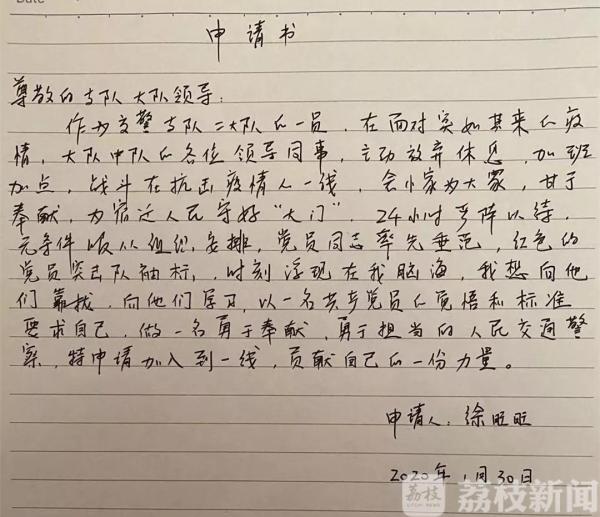 Date
申请书
尊敬的支队大队领导:
作为交警支队二大队的一员,在面对突如其来的疫
情,大队中队的各位领导同事,主动放弃休息,加班
加点,战斗在抗击疫情的一线,舍小家为大家,甘于
奉献,为宿迁人民守好“大门”,24小时严阵以待,
无条件服从组织安排,党员同志率先垂范,红色的
党员突击队袖标,时刻浮现在我脑海,我想向他
们靠拢,向他们学习,以一名共产党员的觉悟和标准
要求自己,做一名勇于奉献,勇于担当的人民交通警
察,特申请加入到一线,贡献自己的一份力量。
申请人:徐旺旺
2020年1月30日
荔枝 荔枝新闻